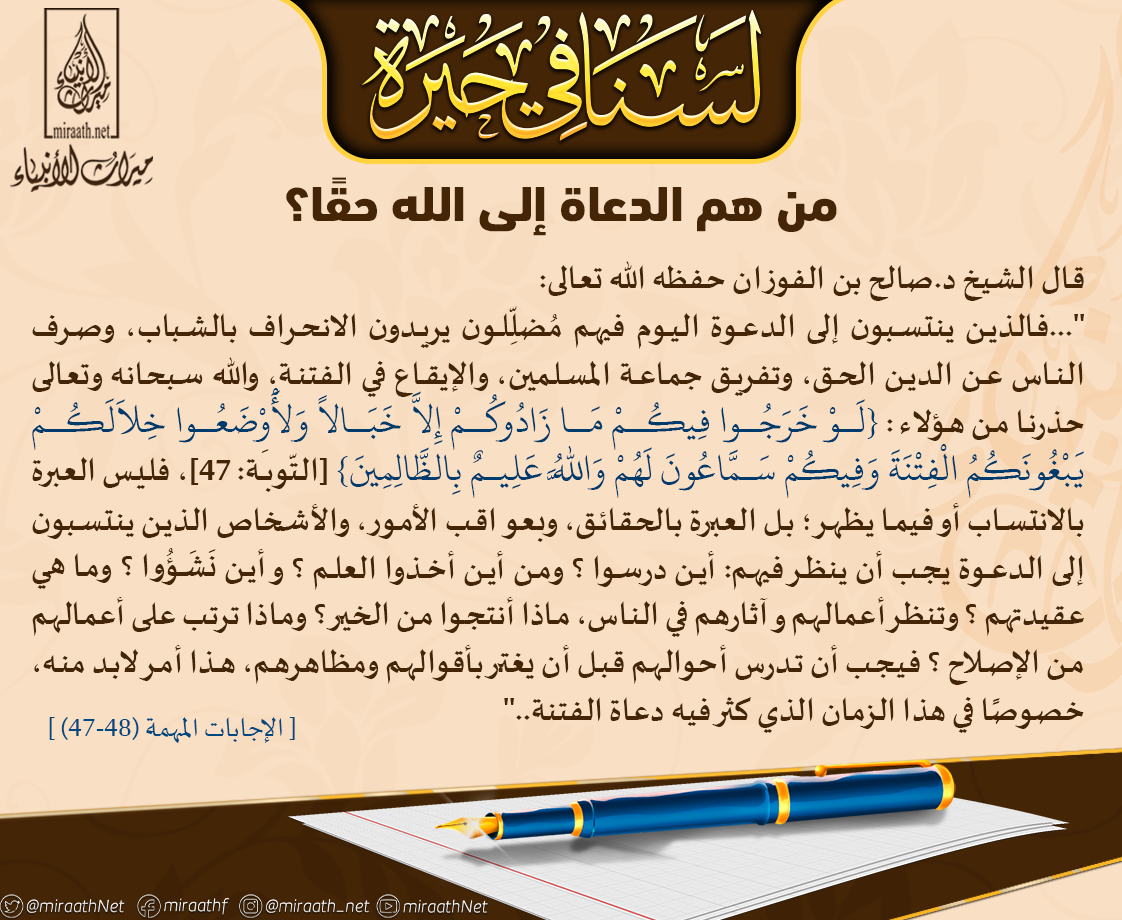 لسنا في حيرة
miraath.net
ميراث الأنبياء
من هم الدعاة إلى الله حقًا؟
قال الشيخ د.صالح بن الفوزان حفظه الله تعالى:
"...فالذين ينتسبون إلى الدعوة اليوم فيهم مُضلِّلون يريدون الانحراف بالشباب، وصرف
الناس عن الدين الحق، وتفريق جماعة المسلمين، والإيقاع في الفتنة، والله سبحانه وتعالى
حذرنا من هؤلاء: {لَوْ خَرَجُوا فِيكُمْ مَا زَادُوكُمْ إِلاَّ خَبَالاً وَلأَوْضَعُوا خِلاَلَكُمْ
يَبْغُونَكُمُ الْفِتْنَةَ وَفِيكُمْ سَمَّاعُونَ لَهُمْ وَاللهُ عَلِيمٌ بِالظَّالِمِينَ} [التّوبَة: 47]، فليس العبرة
بالانتساب أو فيما يظهر؛ بل العبرة بالحقائق، وبعو اقب الأمور، والأشخاص الذين ينتسبون
إلى الدعوة يجب أن ينظر فيهم: أين درسوا ؟ ومن أين أخذوا العلم ؟ و أين نَشَؤُوا ؟ وما هي
عقيدتهم ؟ وتنظر أعمالهم و آثارهم في الناس، ماذا أنتجوا من الخير؟ وماذا ترتب على أعمالهم
من الإصلاح ؟ فيجب أن تدرس أحوالهم قبل أن يغتر بأقوالهم ومظاهرهم، هذا أمر لابد منه،
خصوصًا في هذا الزمان الذي كثر فيه دعاة الفتنة.."
[ الإجابات المهمة (48-47) ]
@miraathNet miraathf @miraath_net miraathNet